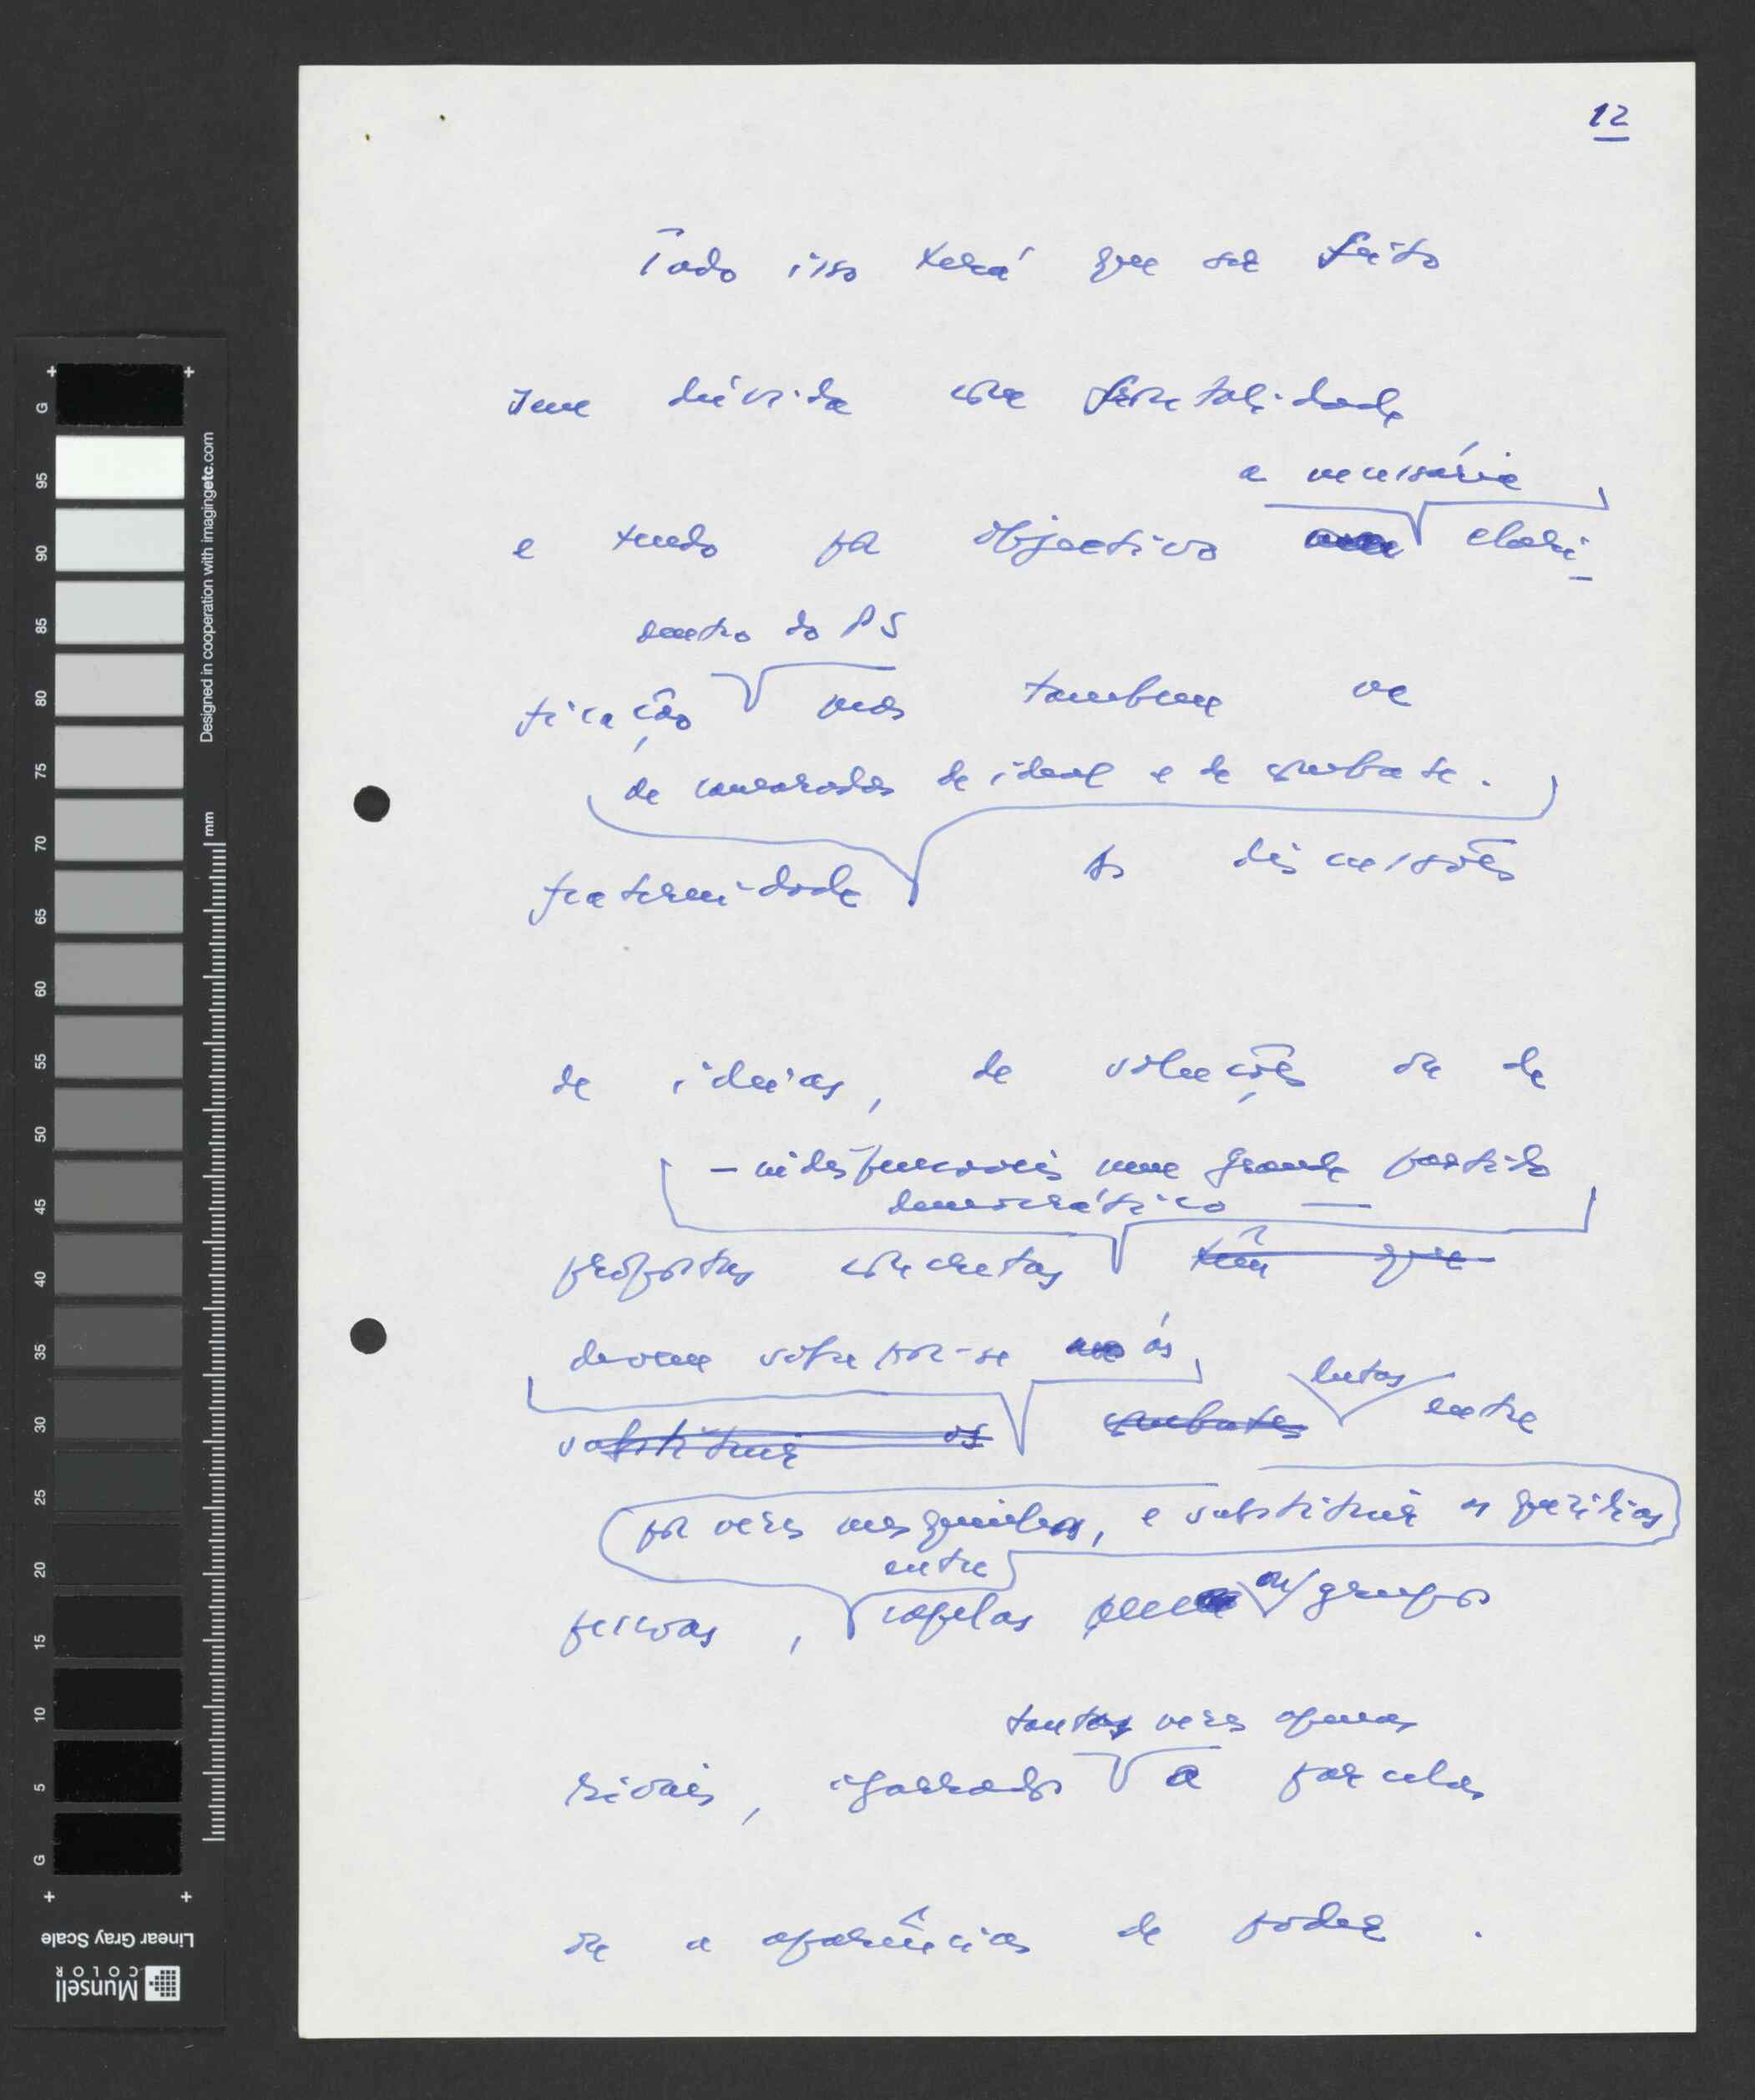 12
Tudo isso terá que ser feito
sem dúvida com frontalidade
a necessária
e tendo por objectivo clari-
dentro do PS
ficação mas tambem na
de camaradas de ideal e de combate.
fraternidade As discussões
de ideias, de soluções ou de
- indispensáveis num grande partido
democrático -
propostas concretas têm que
devem sobrepor-se ás
substituir os combates lutas entre
por vezes mesquinhas, e substituir as guerilhas
entre
pessoas, capelas ou grupos
tantas vezes apenas
rivais, agarrados a parcelas
ou a aparências de poder.
G 95 90 85 80 75 70 65 60 55 50 45 40 35 30 25 20 15 10 5 G
mm
Designed in cooperation with imagingetc.com
Linear Gray Scale
Munsell
COLOR